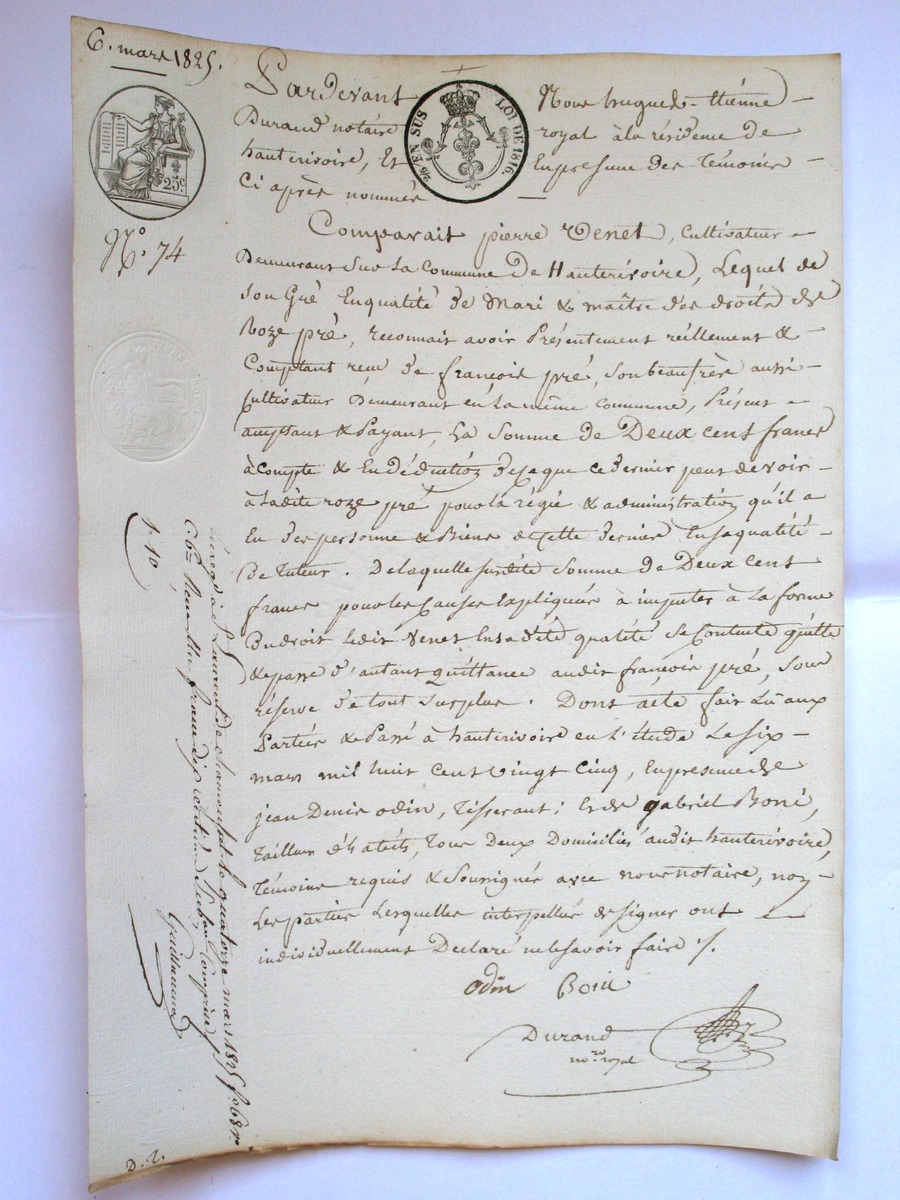 6. mars 1825.
25c
Nº. 74
EN SUS LOI DE 1816.
Pardevant Nous hugues-étienne
Durand notaire royal à la résidence de
hauterivoire, Et En presence des témoins
Ci après nommés
Comparait pierre Venet, Cultivateur
Demeurant sur la Commune de Hauterivoire, Lequel de
son Gré En qualité de Mari & maître des droits de
Roze pré, reconnait avoir Présentement réellement &
Comptant reçu de françois pré, son beaufrère aussi
Cultivateur Demeurant en la même commune, Présent
acceptant & Payant, La Somme de Deux cent francs
à compte & En déduction de ce que ce dernier peut devoir
à ladite roze pré pour la régie & administration qu'il a
Eu des personne & Biens de cette dernière En sa qualité
De tuteur. De laquelle susdite somme de Deux cent
francs pour les Causes Expliquées à imputer à La forme
Du droit Ledit Venet En sa dite qualité se Contente quitte
& passe d'autant quittance audit françois pré, sous
réserve de tout surplus. Dont acte fait Lu aux
Parties & Passé à hauterivoire en L'étude Le six
mars mil huit Cent vingt Cinq, En presence de
jean Denis odin, tisserant; Et de gabriel Boni,
tailleur d'habits, tous Deux Domiciliés audit hauterivoire,
témoins requis & Soussignés avec nous notaire, non
Les parties Lesquelles interpellées de signer ont
individuellement Déclaré ne le savoir faire /.
odin Boni
Durand
no.re royal
à St Laurent de chamousset le quatorze mars 1825 fo 68 ro
C. reçu un franc dix centimes Subon Comprise
1. 10
D. 2.